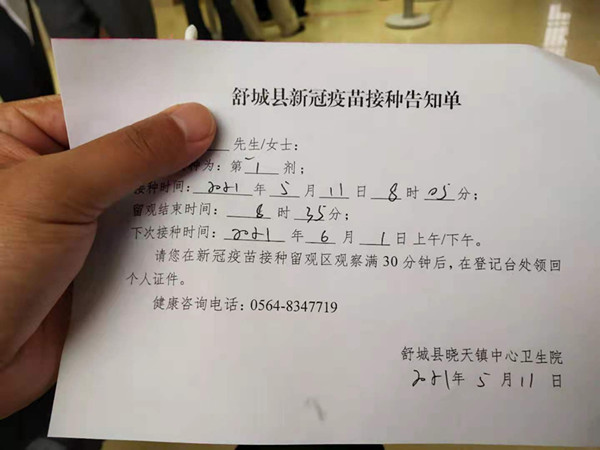 舒城县新冠疫苗接种告知单
先生/女士:
种为:第1剂;
接种时间:2021年5月11日8时05分;
留观结束时间:8时35分;
下次接种时间:2021年6月1日上午/下午。
请您在新冠疫苗接种留观区观察满30分钟后,在登记台处领回
个人证件。
健康咨询电话:0564-8347719
舒城县晓天镇中心卫生院
2021年5月11日